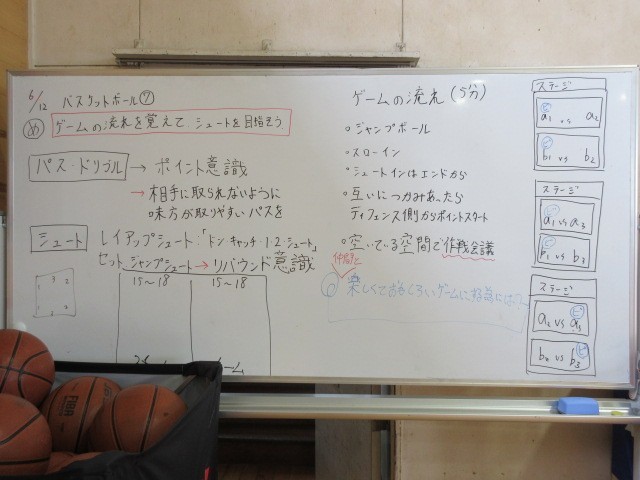 6/12 バスケットボール⑦
め ゲームの流れを覚えて シュートを目指そう。
パス・ドリブル → ポイント意識
→ 相手に取られないように
○味方が取りやすいパスを
シュート レイアップシュート:「ドン・キャッチ・1・2・シュート」
セット、ジャンプシュート → リバウンド意識
15〜18 15〜18
ゲームの流れ (5分)
○ジャンプボール
○スローイン
○シュートインはエンドから
○互いにつかみあったら
ディフェンス側からポイントスタート
○空いている空間で作戦会議
仲間と
楽しくておもしろいゲームに
ステージ
a₁ vs a₂
b₁ vs b₂
ステージ
a₁ vs a₃
b₁ vs b₃
ステージ
a₂ vs a₃
b₂ vs b₃